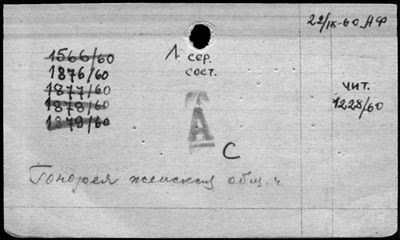 22/IX-60 АФ
1 сер.
сост.
1566/60
1876/60
1877/60
1878/60
1879/60
чит.
1228/60
А
С
Гонорея женская общ. ч